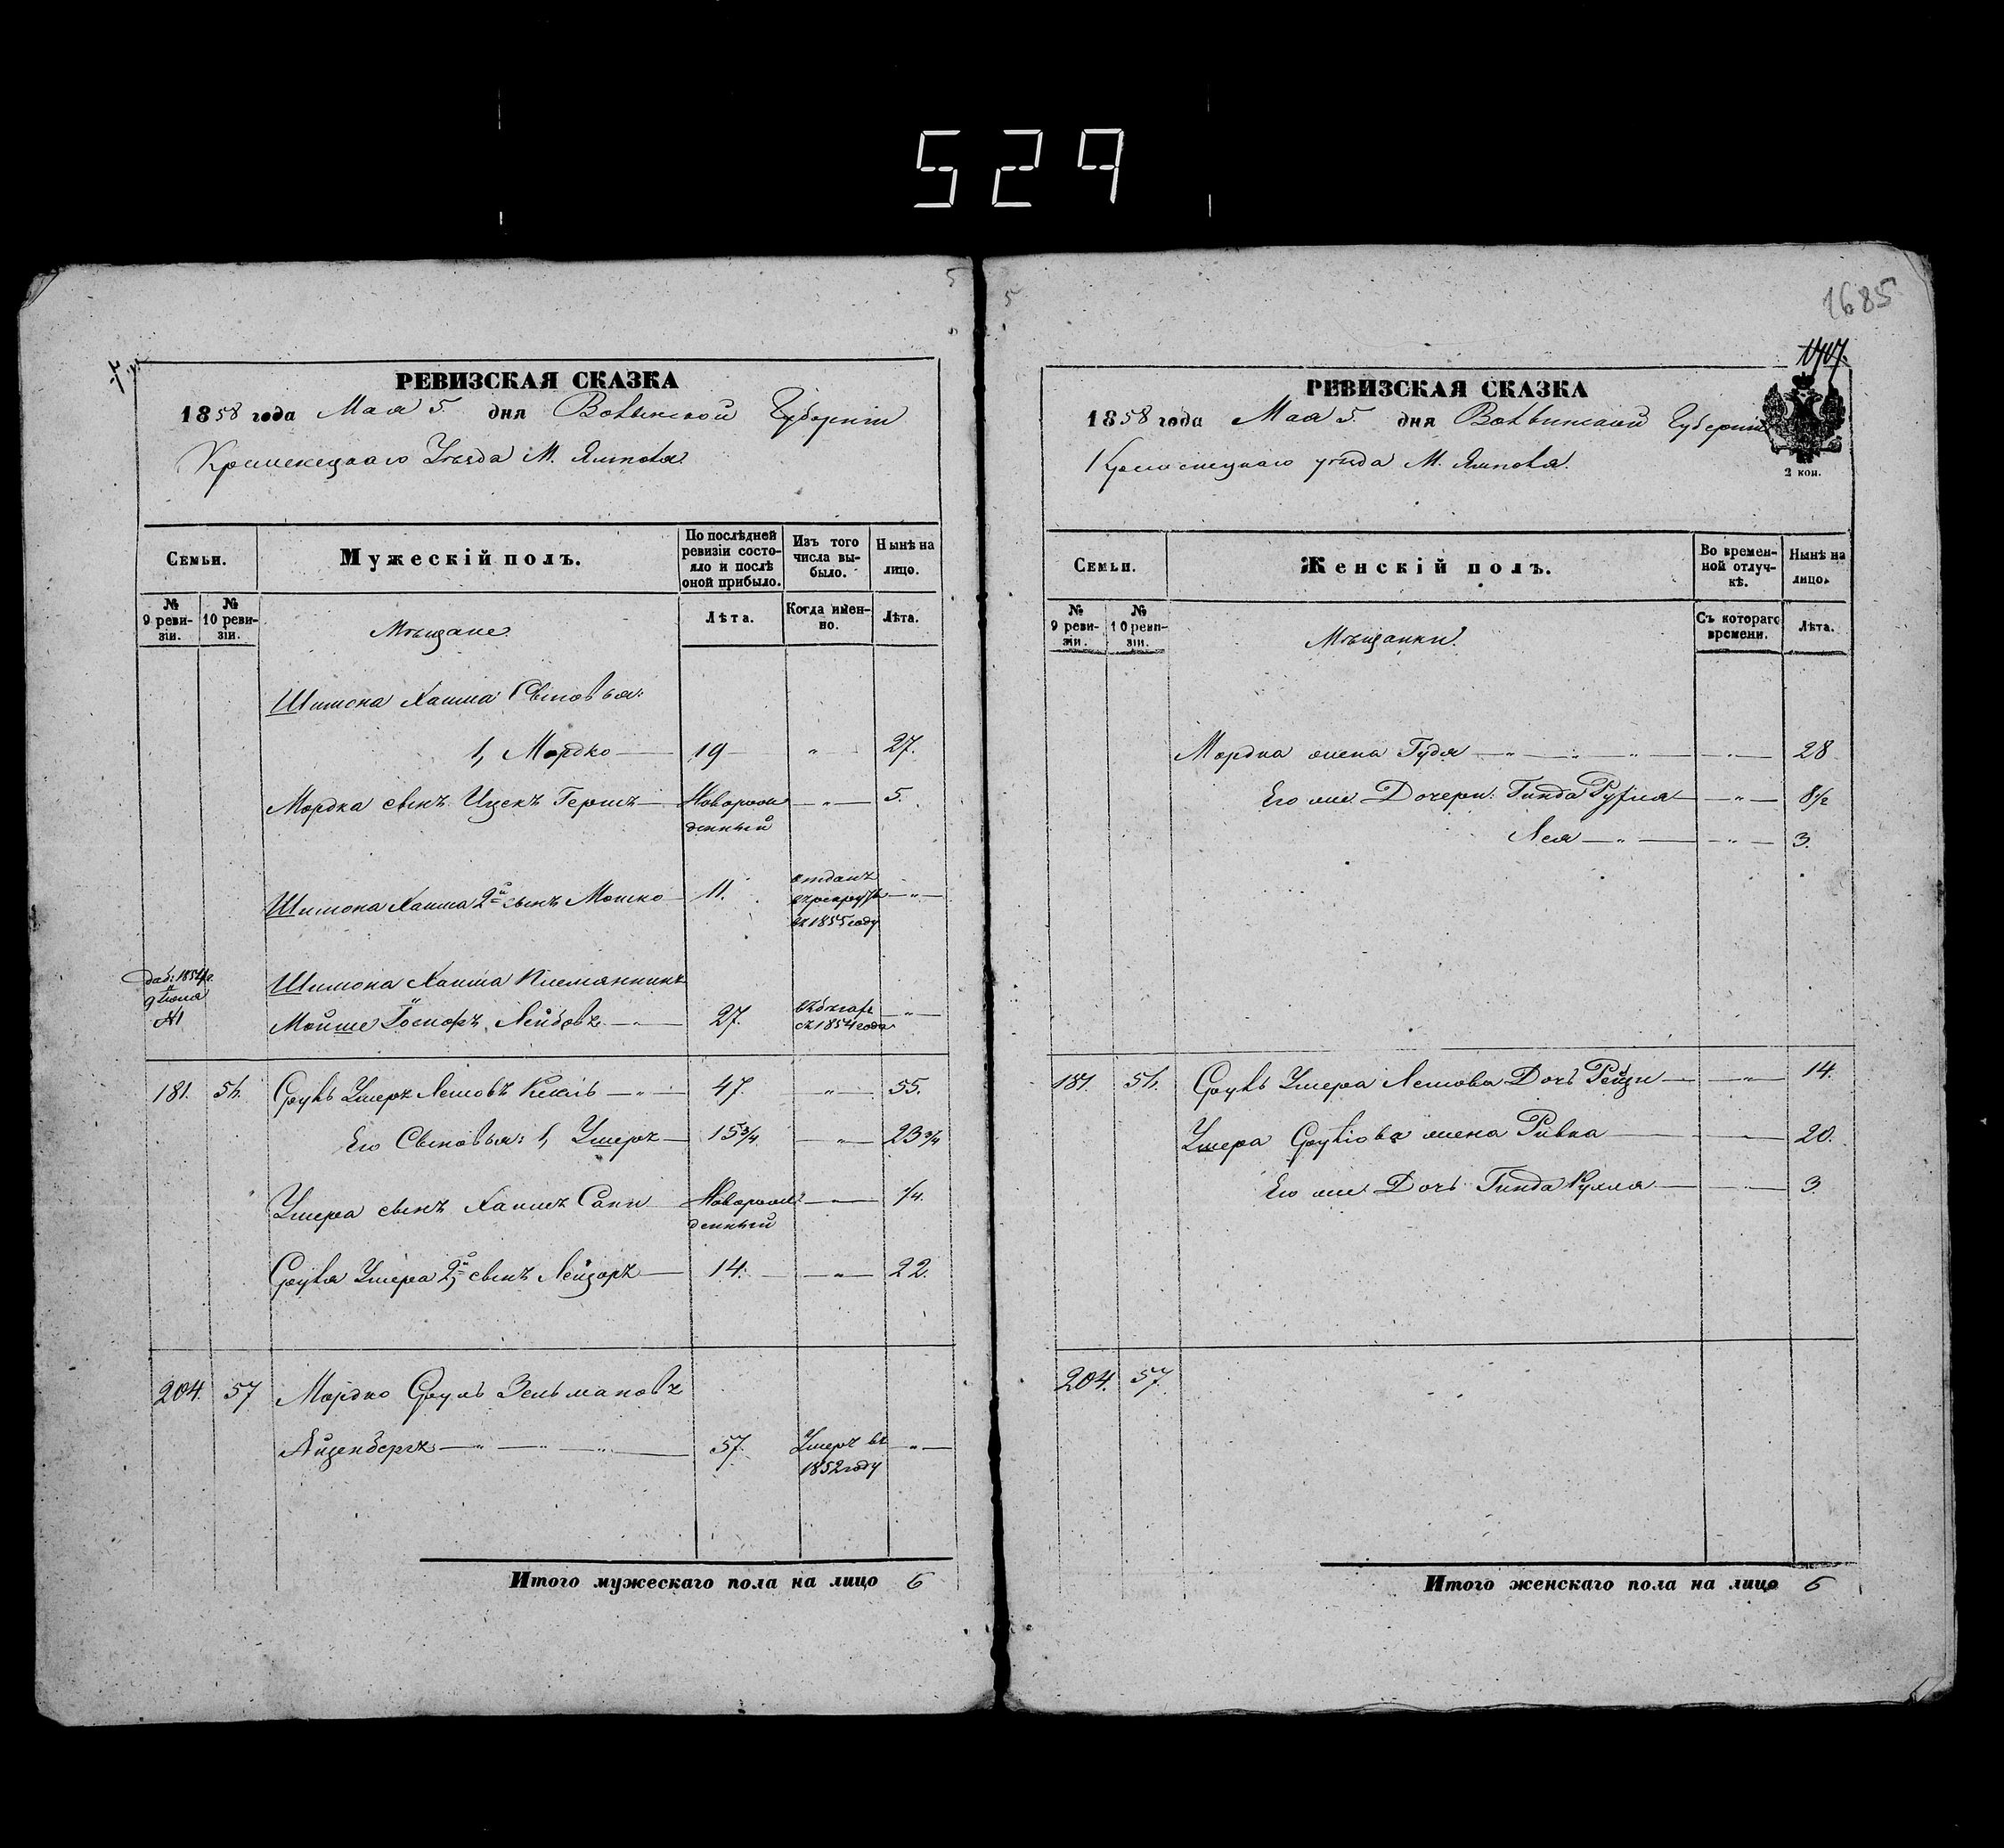 529
5
РЕВИЗСКАЯ СКАЗКА
1858 года Мая 5. дня Волынской Губернии
Кременецкаго Уѣзда М. Ямполя
Семьи.
Мужескій полъ.
По послѣдней ревизіи состояло и послѣ оной прибыло.
Изъ того числа выбыло.
Нынѣ на лицо.
№ 9 ревизіи.
№ 10 ревизіи.
Мѣщане
Лѣта.
Когда именно.
Лѣта.
Шимона Хаима Сыновья:
1, Мордко — 19 — „ — 27.
Мордка сынъ Ицекъ Гершъ — Новорож — „ — 5.
денный
отданъ
Шимона Хаима 2й сынъ Мошко — 11. в рекруты — „ —
въ 1855 году
доб. 1854 г.
9 Июня
№1
Шимона Хаима племянникъ
Мойше Лейбовъ — „ — 27. въ бѣгах — „ —
съ 1854 года
181. 56. Сруль Ушеръ Лемовъ — „ — 47. — „ — 55.
Его Сыновья: 1, Ушеръ — 15 3/4 — „ — 23 3/4
Ушера сынъ Хаимъ — Новорож — „ — 1/4.
денный
Сруля Ушера 2й сынъ Лейзоръ — 14. — „ — 22.
204. 57 Мордко Сруль Зельмановъ
Айзенбергъ — „ — „ — „ — 57. Умеръ въ — „ —
1852 году
Итого мужескаго пола на лицо 6
5
1685
1707.
РЕВИЗСКАЯ СКАЗКА
1858 года Мая 5. дня Волынской Губернии
Кременецкаго уѣзда М. Ямполя.
2 коп.
Семьи.
Женскій полъ.
Во временной отлучкѣ.
Нынѣ на лицо.
№ 9 ревизіи.
№ 10 ревизіи.
Мѣщанки.
Съ котораго времени.
Лѣта.
Мордка жена Гудя — „ — „ — „ — „ — 28
Его же Дочери: Гинда Рухля — „ — 8 1/2
Лея — „ — „ — 3.
181. 56. Сруль Ушера Лемова Дочь Рейзи — „ — 14.
Ушера Срулiова жена Ривка — „ — 20.
Его же Дочь Гинда Рухля — „ — 3.
204. 57.
Итого женскаго пола на лицо 6